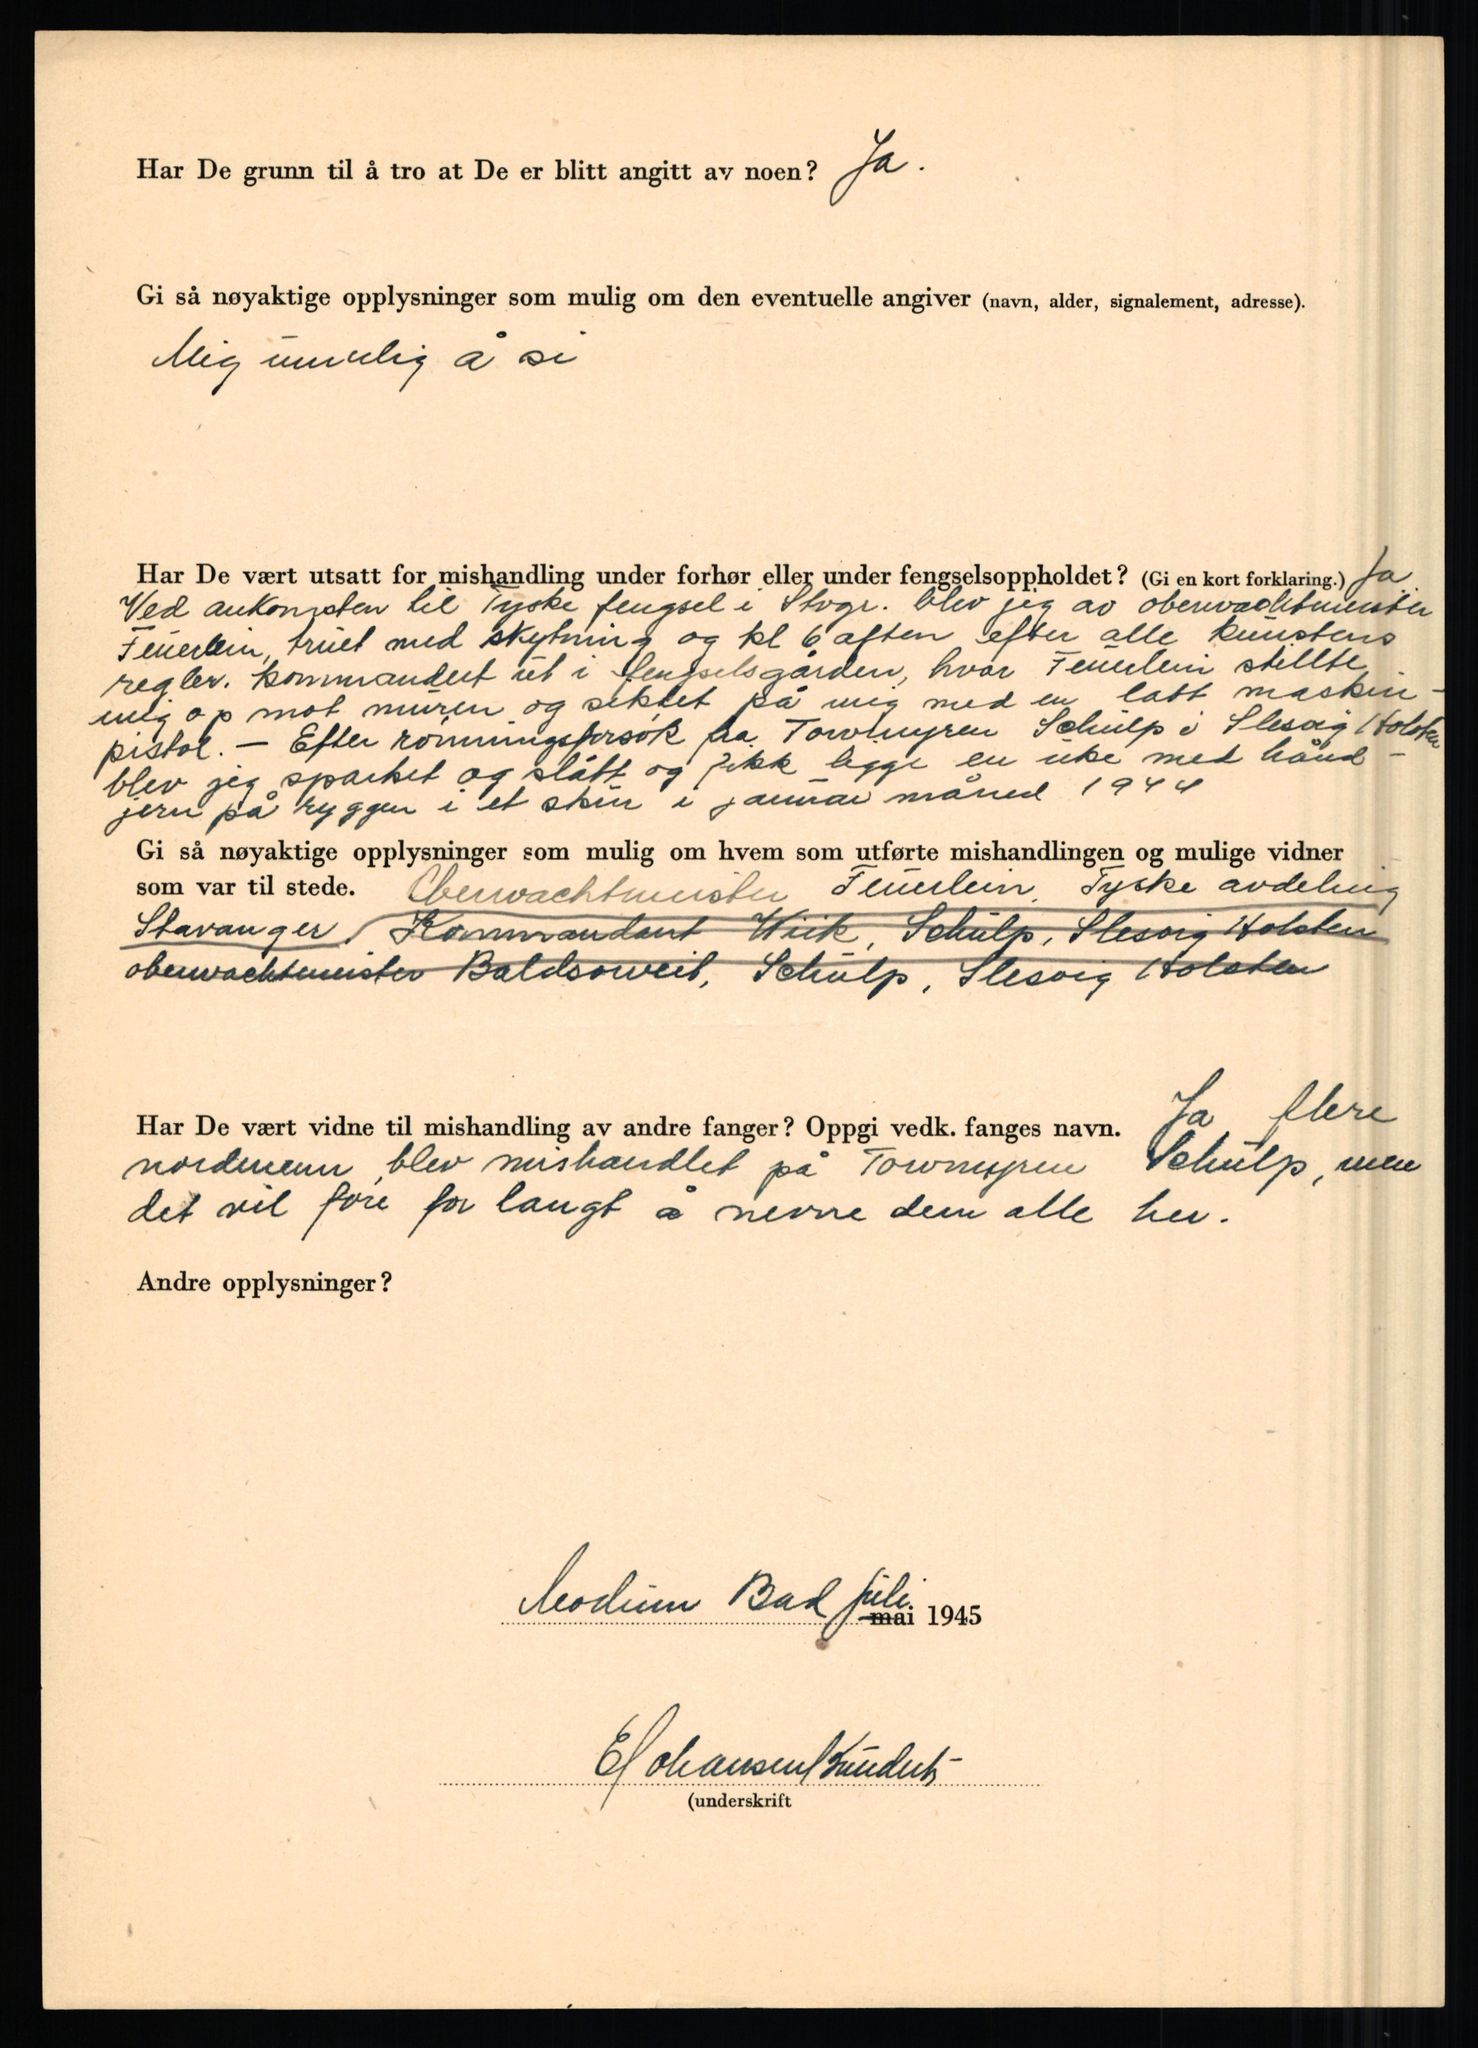 Har De grunn til å tro at De er blitt angitt av noen? Ja.
Gi så nøyaktige opplysninger som mulig om den eventuelle angiver (navn, alder, signalement, adresse).
Mig umulig å si
Har De vært utsatt for mishandling under forhør eller under fengselsoppholdet? (Gi en kort forklaring.) Ja
Ved ankomsten til Tyske fengsel i Stvgr. blev jeg av oberwachtmeister
Feuerlein, truet med skytning og kl 6 aften efter alle kunstens
regler. kommandert ut i fengselsgården, hvor Feuerlein stillte
mig op mot muren og siktet på mig med en latt maskin-
pistol. - Efter rømningsforsøk fra Torvmyren Schülp i Slesvig Holsten
blev jeg sparket og slått og fikk ligge en uke med hånd-
jern på ryggen i et skur i januar måned 1944
Gi så nøyaktige opplysninger som mulig om hvem som utførte mishandlingen og mulige vidner
som var til stede. Oberwachtmeister Feuerlein, Tyske avdeling
Stavanger, Kommandant Wiik, Schülp, Slesvig Holsten
oberwachtmeister Baldsoweit, Schülp, Slesvig Holsten
Har De vært vidne til mishandling av andre fanger? Oppgi vedk. fanges navn. Ja flere
nordmenn blev mishandlet på Torvmyren Schülp, men
det vil føre for langt å nevne dem alle her.
Andre opplysninger?
Modum Bad juli mai 1945
E Johansen
(underskrift